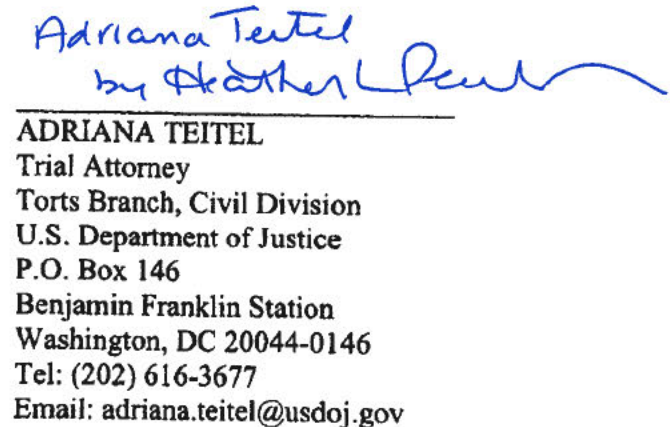 Adriana Teitel
by Heather L
ADRIANA TEITEL
Trial Attorney
Torts Branch, Civil Division
U.S. Department of Justice
P.O. Box 146
Benjamin Franklin Station
Washington, DC 20044-0146
Tel: (202) 616-3677
Email: adriana.teitel@usdoj.gov